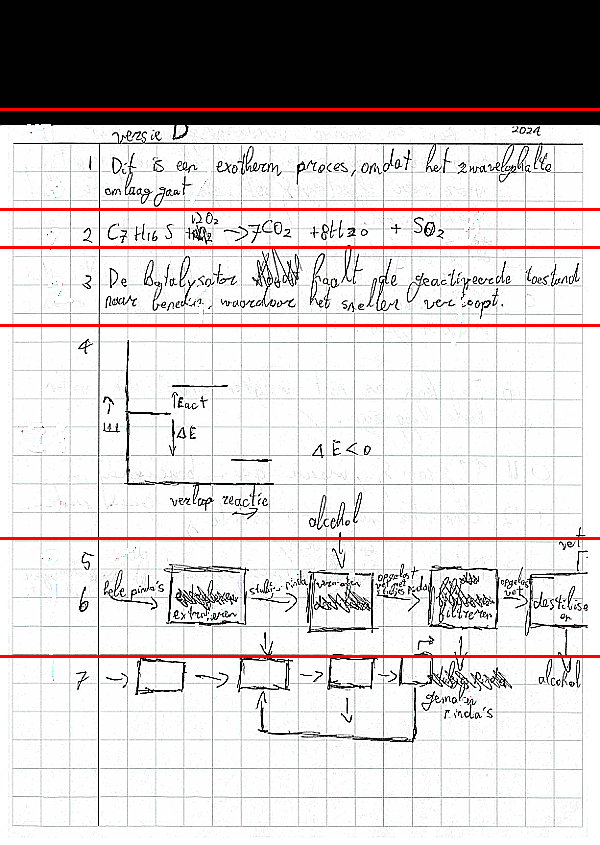 versie D
2024
1 Dit is een exotherm proces, omdat het zwavelgehalte
omlaag gaat
12 O2
2 C7 H16 S + → 7CO2 + 8H2O + SO2
3 De katalysator haalt de geactiveerde toestand
naar beneden, waardoor het sneller verloopt.
4
↑ Eact
E
↓ ΔE
ΔE < 0
verloop reactie
→
alcohol
5
vet
6 hele pinda's
extraheren
stukjes pinda
opgelost
vet met
stukjes pinda
filtreren
opgelost
vet
destiller
en
7
alcohol
gemalen
pinda's